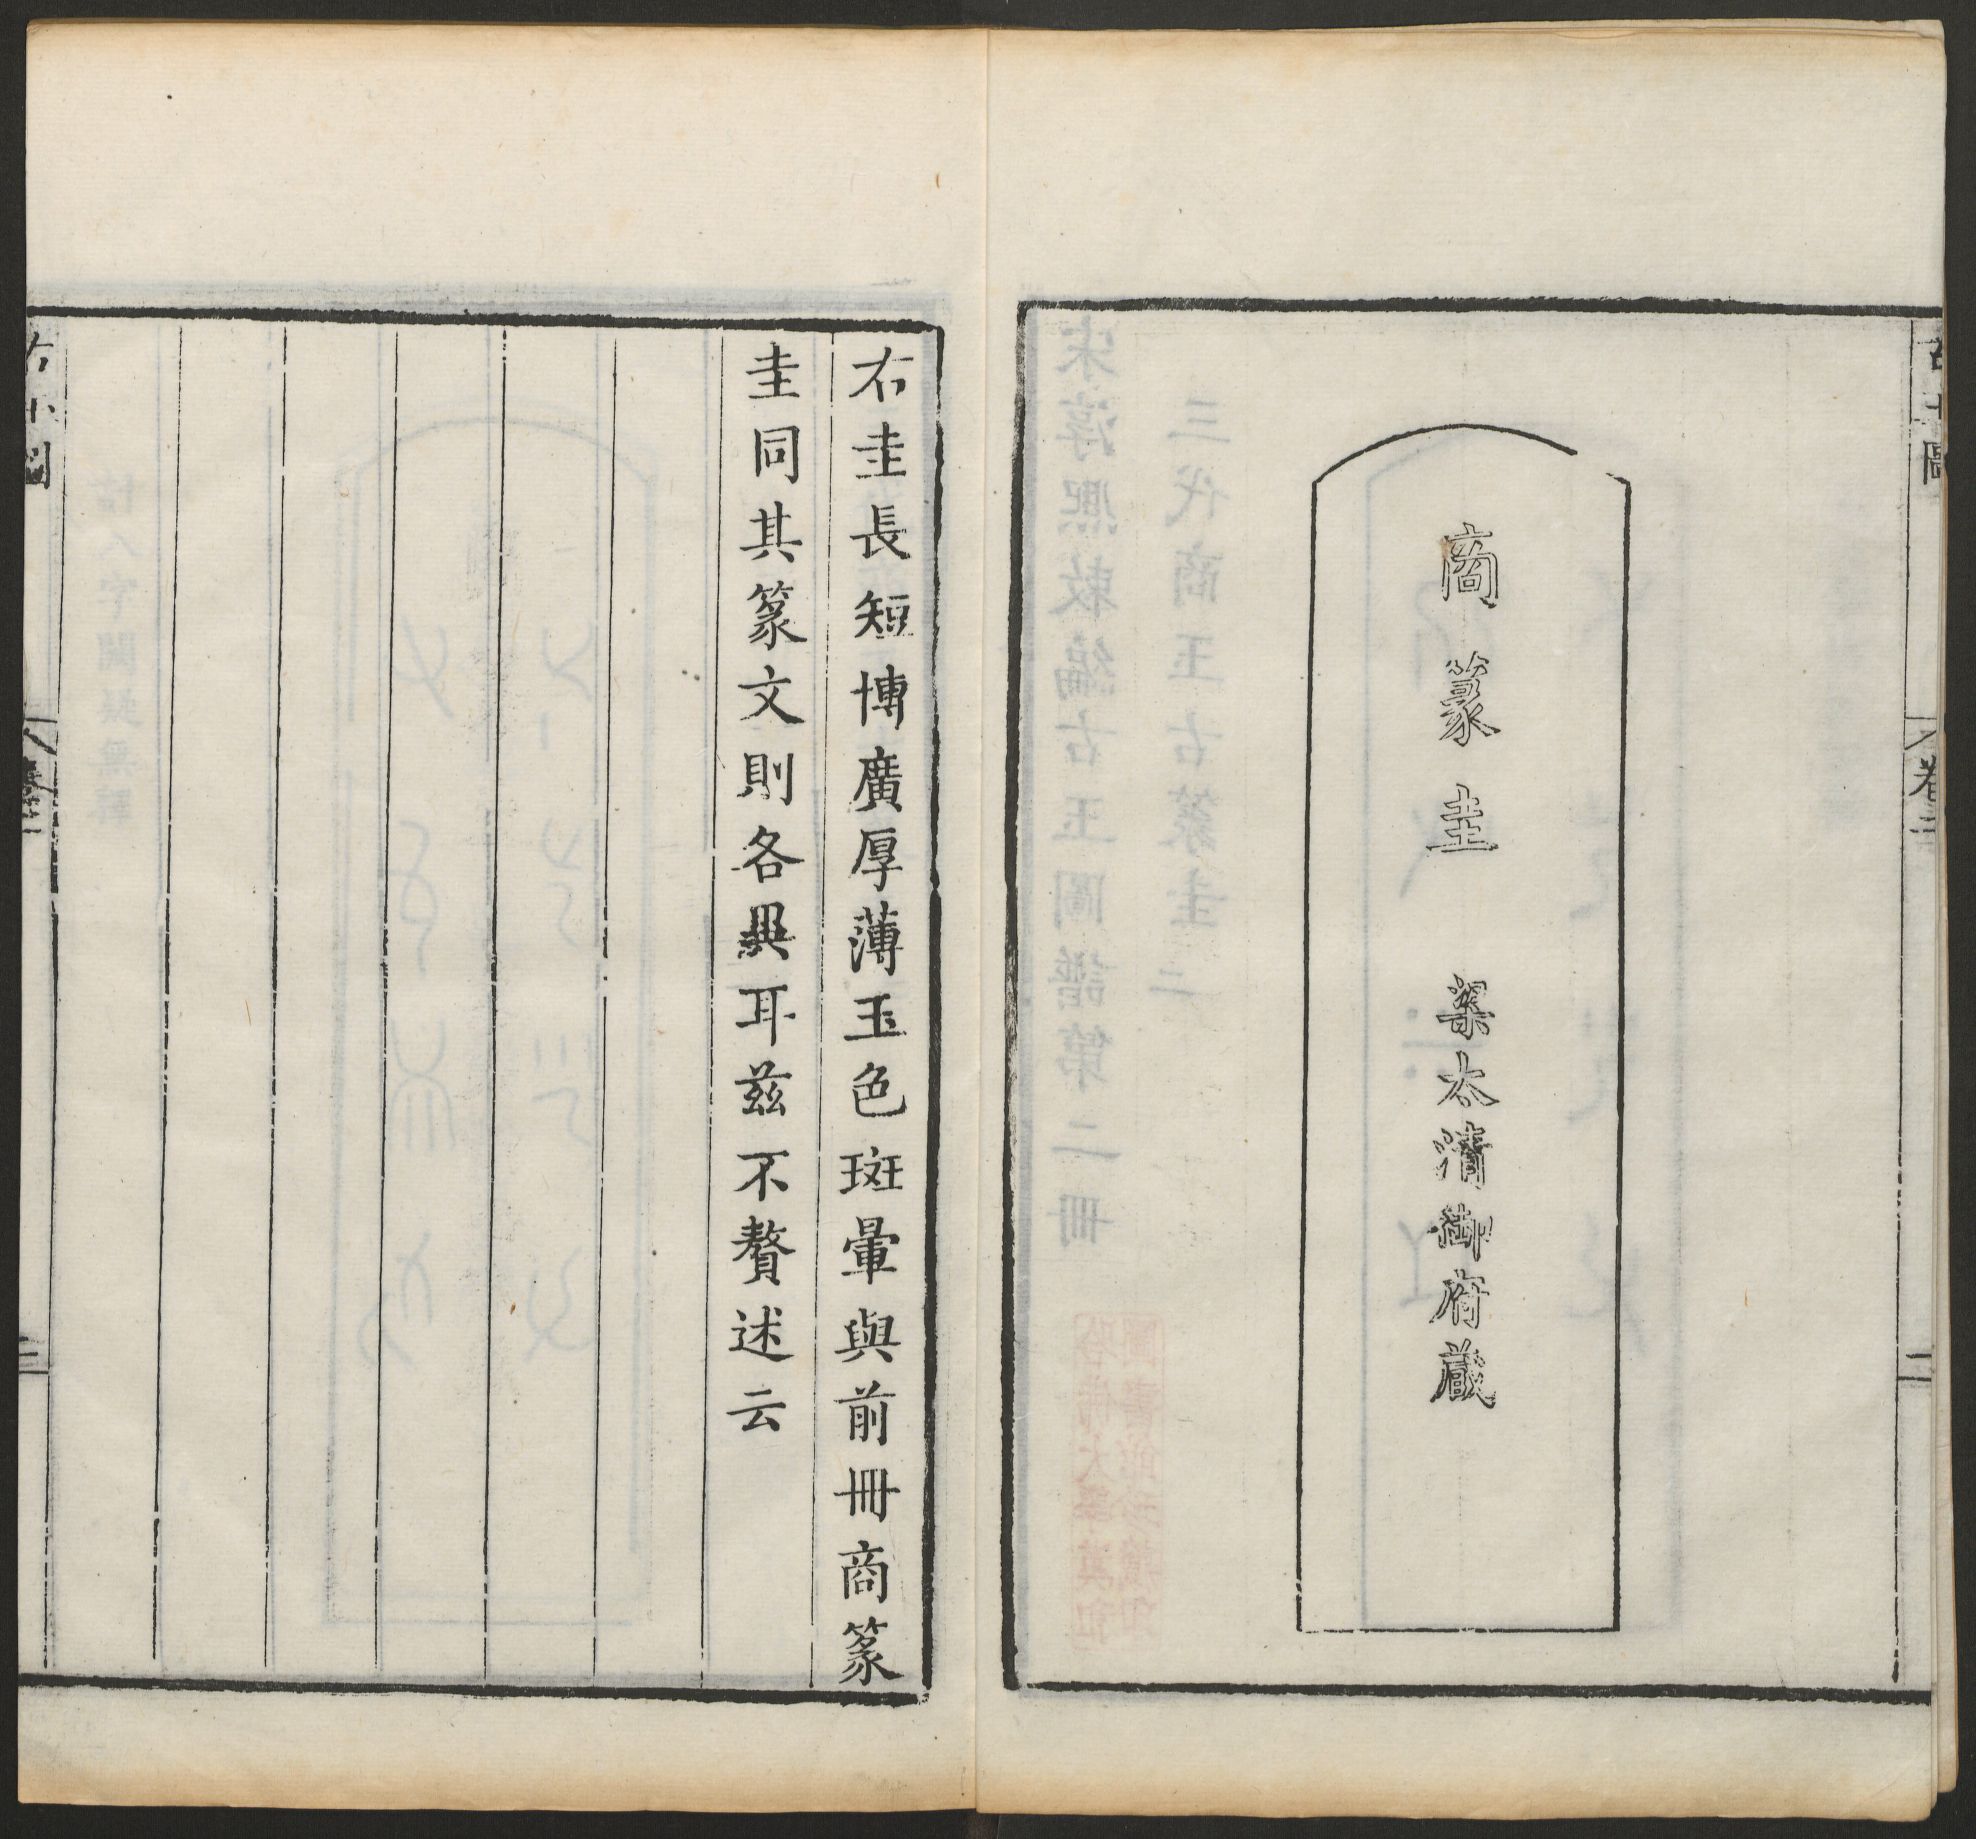 商篆圭
梁太清御府藏
卷二
二
右圭長短博廣厚薄玉色斑暈與前冊商篆
圭同其篆文則各異耳茲不贅述云